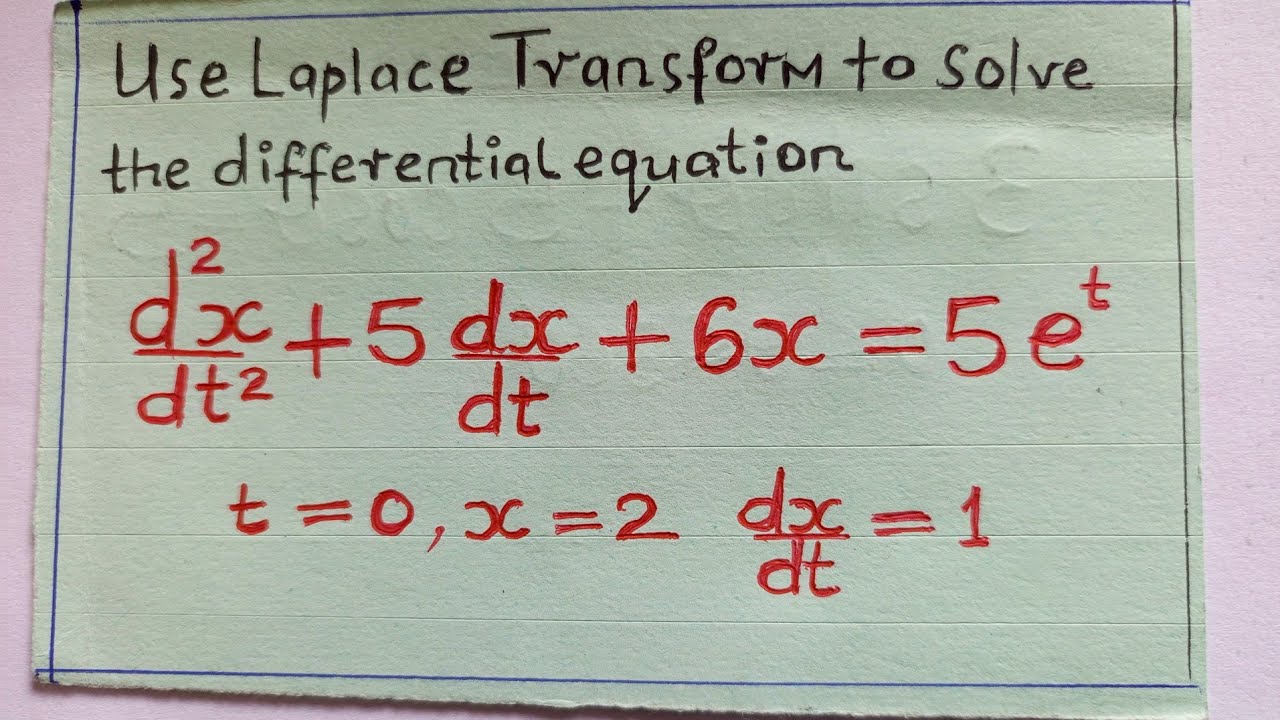 Use Laplace Transform to solve
the differential equation
d²x/dt² + 5 dx/dt + 6x = 5e^t
t = 0, x = 2 dx/dt = 1